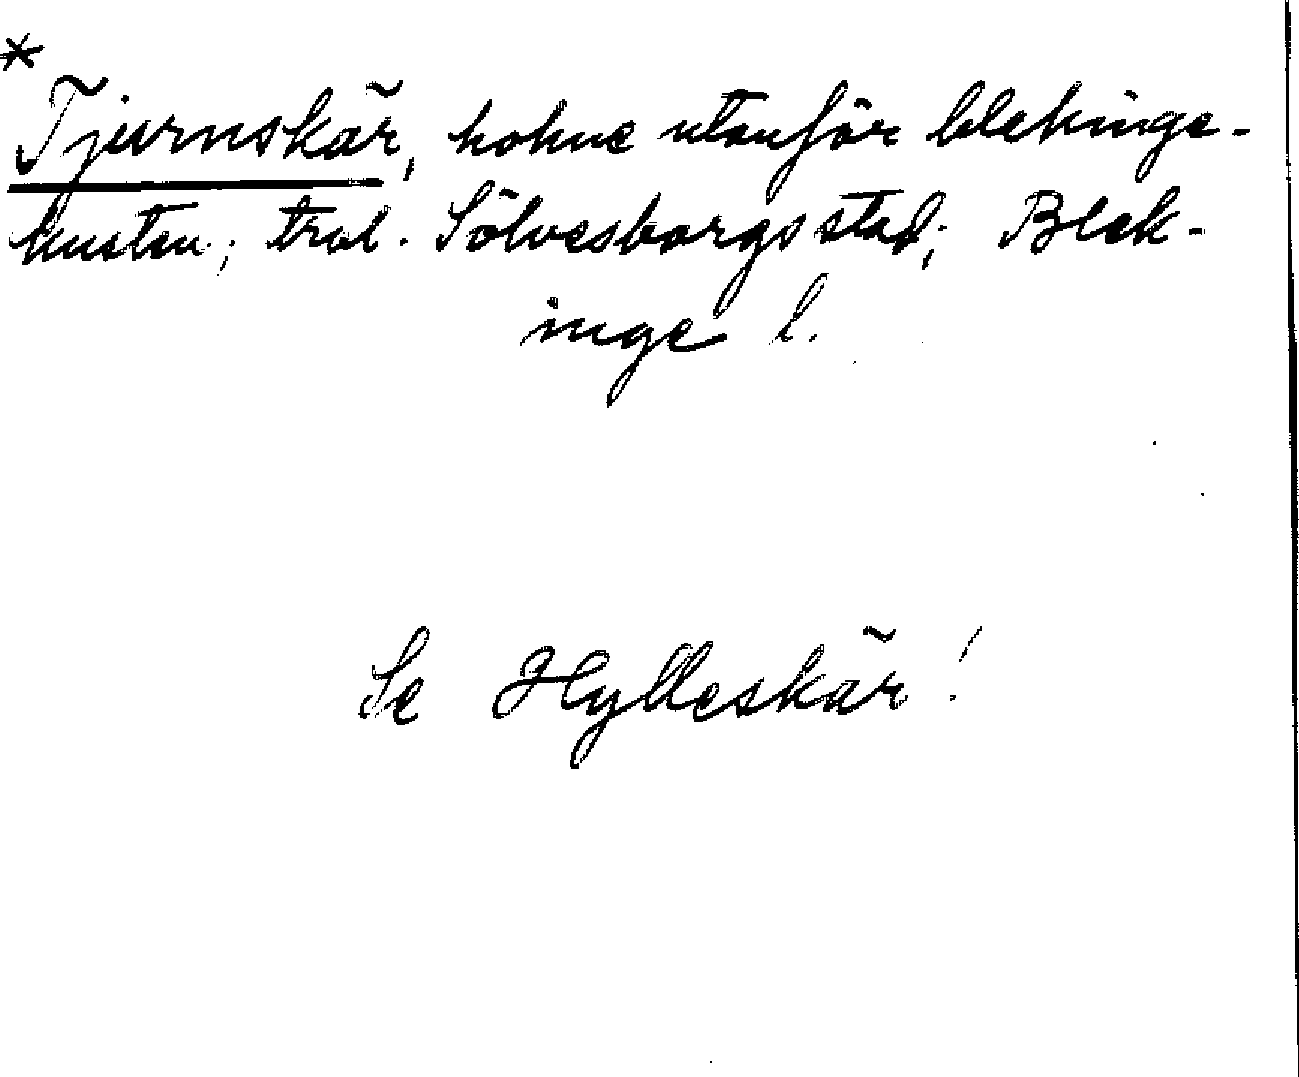 *
Tjurnskär, holme utanför blekinge-
kusten; trol. Sölvesborgs stad; Blek-
inge l.
Se Hylleskär!